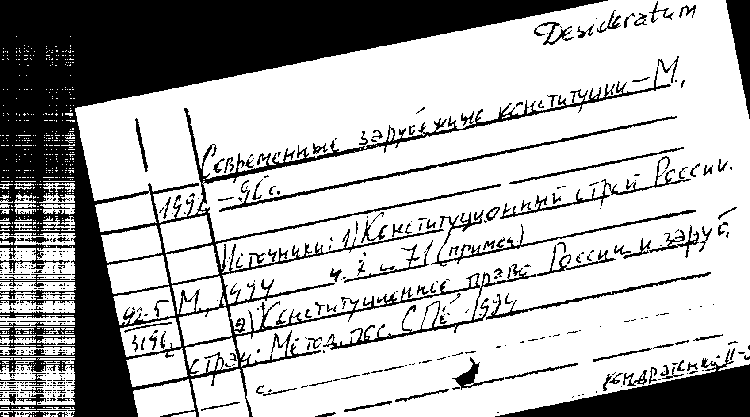 Desideratum
Современные зарубежные конституции – М.,
1992 – 96 с.
Источники: 1) Конституционный строй России.
М., 1994 с. 71 (примеч)
2) Конституционное право России и заруб.
стран: Метод. пос. СПб, 1994
92-5
3196
с.